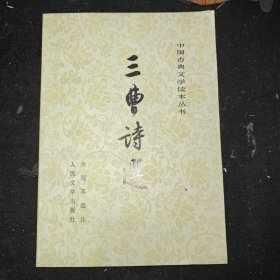 中国古典文学读本丛书
三曹诗选
余冠英选注
人民文学出版社